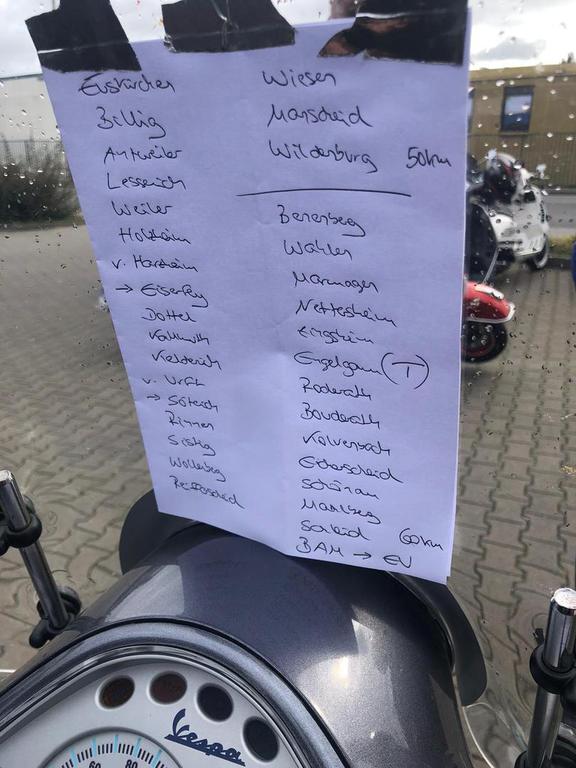 Euskirchen
Billig
Antweiler
Lessenich
Weiler
Holzheim
v. Harzheim
→ Eiserfey
Dottel
Kallmuth
Keldenich
v. Urft
→ Sötenich
Rinnen
Sistig
Wollenberg
Reifferscheid
Wiesen
Manscheid
Wildenburg 50km
Benenberg
Wahlen
Marmagen
Nettersheim
Engelgau (T)
Roderath
Bouderath
Kolvenbach
Eicherscheid
Schönau
Mahlberg
60km
BAM → EU
Vespa
60 80